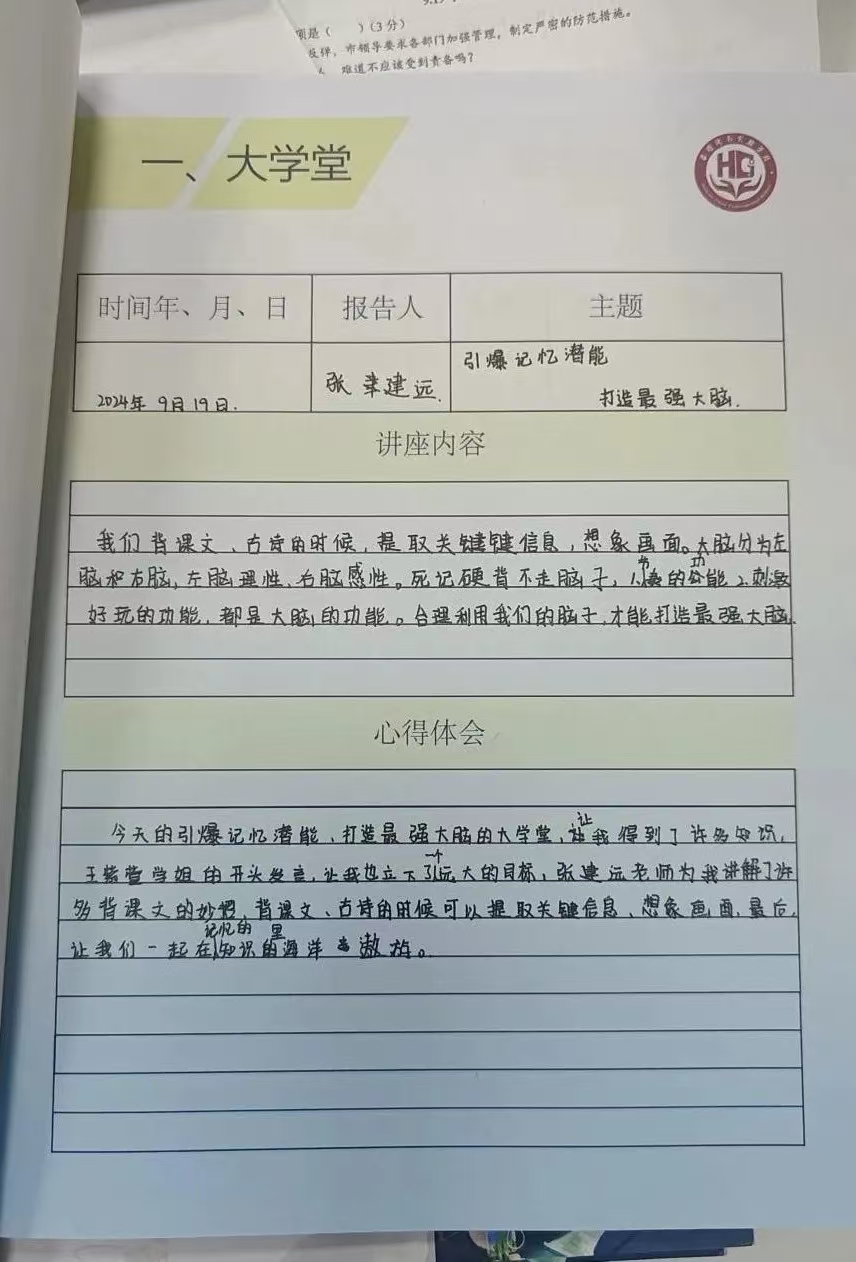 项是（　　）（3分）
反弹，市领导要求各部门加强管理，制定严密的防范措施。
难道不应该受到责备吗？
一、大学堂
HG
时间年、月、日 报告人 主题
引爆记忆潜能
2024年9月19日. 张建远. 打造最强大脑.
讲座内容
我们背课文、古诗的时候，提取关键键信息，想象画面。大脑分为左
脑和右脑，左脑理性，右脑感性。死记硬背不走脑子，1.的功能2.刺激
好玩的功能，都是大脑的功能。合理利用我们的脑子，才能打造最强大脑.
心得体会
今天的引爆记忆潜能、打造最强大脑的大学堂，让我得到了许多知识，
王学姐的开头发言，让我也立下了一个远大的目标，张建远老师为我讲解了许
多背课文的妙招，背课文、古诗的时候可以提取关键信息，想象画面，最后，
让我们一起在记忆的知识的海洋里遨游。